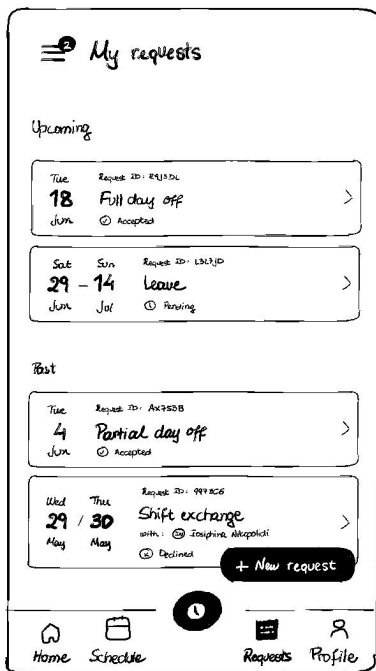 2
My requests
Upcoming
Tue 18 Jun
Request ID: E9J3DL
Full day off
Accepted
Sat 29 Jun – Sun 14 Jul
Request ID: L3L7JD
Leave
Pending
Past
Tue 4 Jun
Request ID: AX753B
Partial day off
Accepted
Wed 29 May / Thu 30 May
Request ID: 997BC6
Shift exchange
with: Iosiphina
Declined
+ New request
Home Schedule Requests Profile